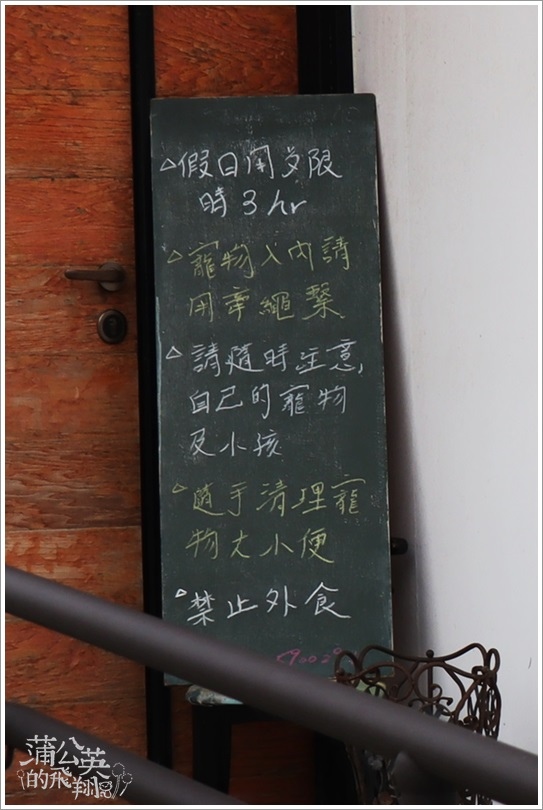 △假日用歺限
時3hr
△寵物入內請
用牽繩繫
△請隨時注意,
自己的寵物
及小孩
△隨手清理寵
物大小便
△禁止外食
蒲公英
的飛翔